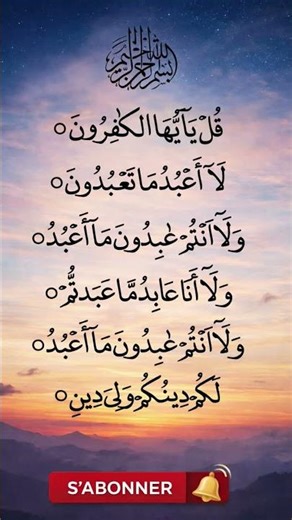 بسم الله الرحمن الرحيم
قُلْ يَآ أَيُّهَا الْكٰفِرُونَ ○
لَآ أَعْبُدُ مَا تَعْبُدُونَ ○
وَلَآ أَنْتُمْ عٰبِدُونَ مَآ أَعْبُدُ ○
وَلَآ أَنَا عَابِدٌ مَّا عَبَدتُّمْ ○
وَلَآ أَنْتُمْ عٰبِدُونَ مَآ أَعْبُدُ ○
لَكُمْ دِينُكُمْ وَلِىَ دِينِ ○
S'ABONNER